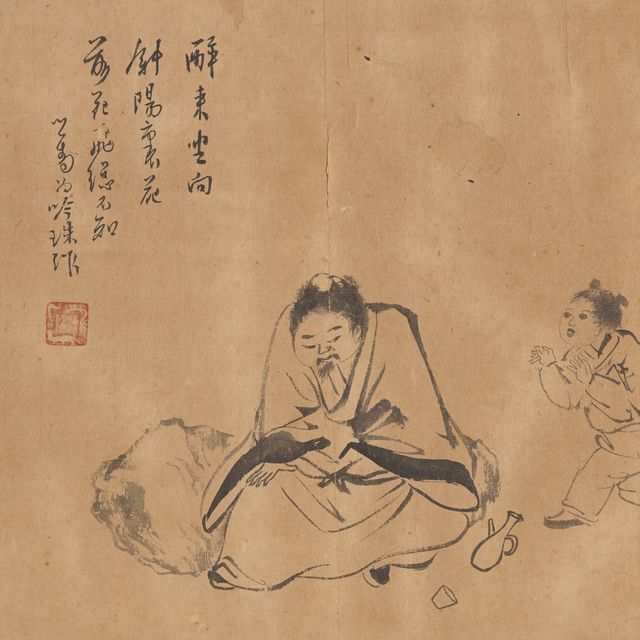 醉來坐向
斜陽裏花
落花飛總不知
心畬為吟珠作